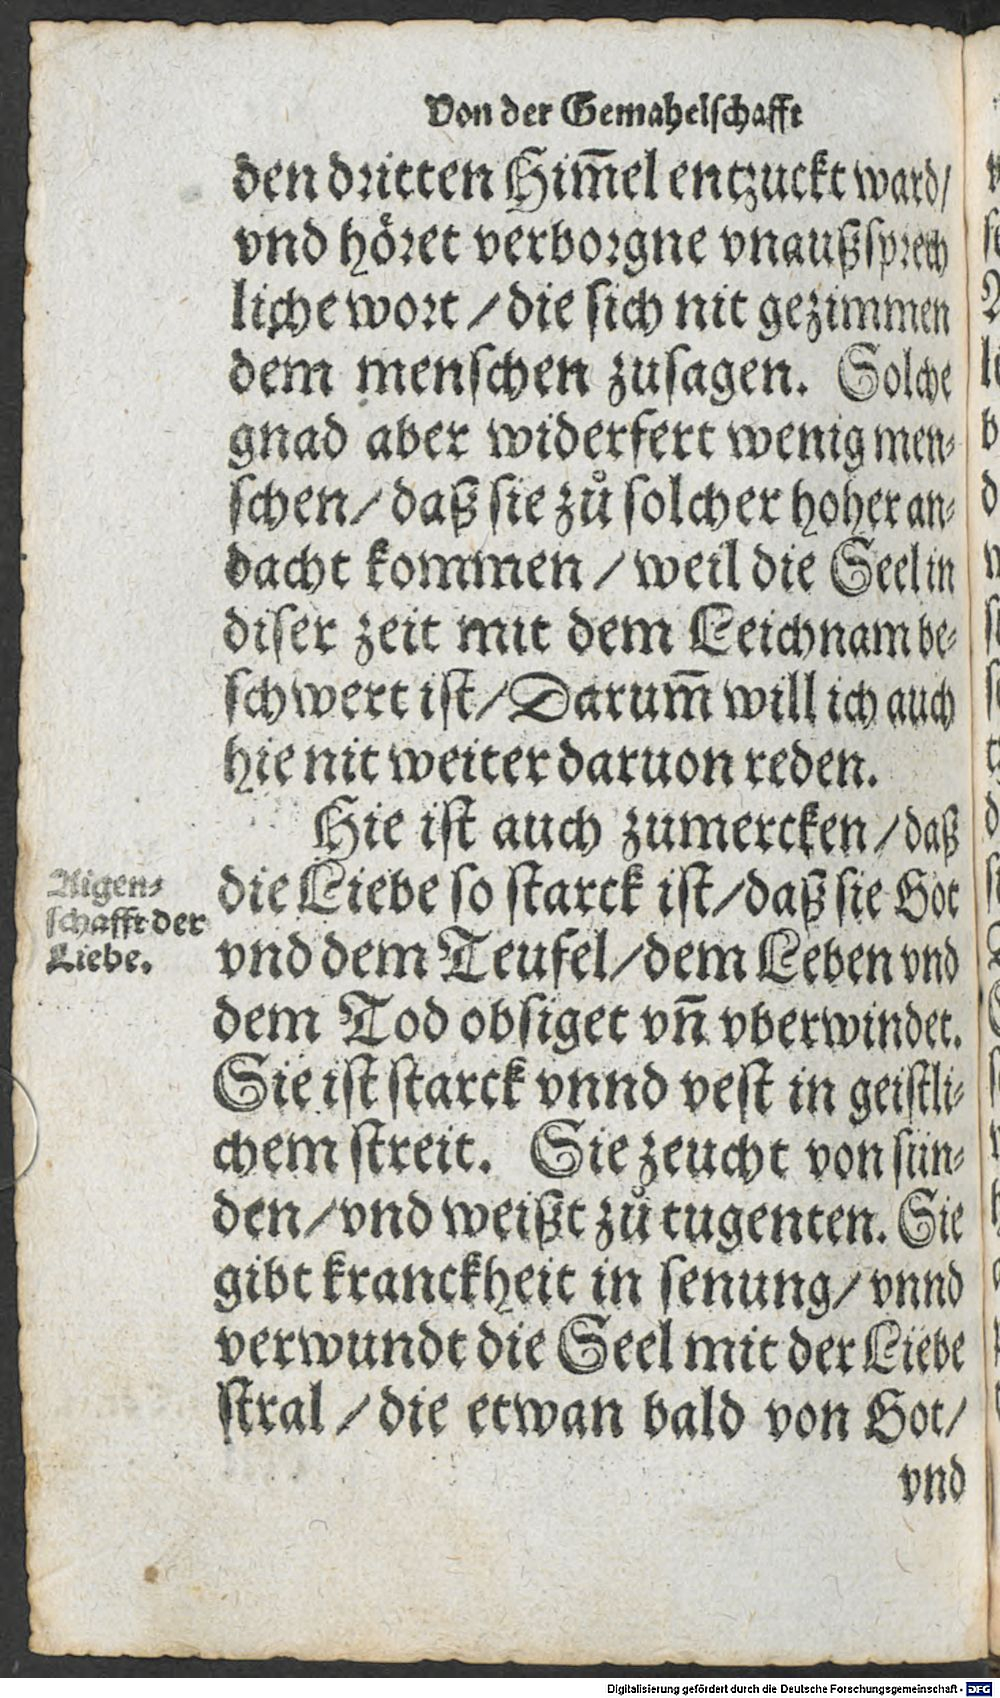 Von der Gemahelschafft
den dritten Him̅el entzuckt ward/
vnd höret verborgne vnaußsprech
liche wort / die sich nit gezimmen
dem menschen zusagen. Solche
gnad aber widerfert wenig men⸗
schen/ daß sie zů solcher hoher an⸗
dacht kommen / weil die Seel in
diser zeit mit dem Leichnam be⸗
schwert ist/ Darum̅ will ich auch
hie nit weiter daruon reden.
Hie ist auch zumercken/ daß
Aigen⸗
schafft der
Liebe.
die Liebe so starck ist/ daß sie Got
vnd dem Teufel/ dem Leben vnd
dem Tod obsiget vn̅ vberwindet.
Sie ist starck vnnd vest in geistli⸗
chem streit. Sie zeucht von sün⸗
den/ vnd weißt zů tugenten. Sie
gibt kranckheit in senung/ vnnd
verwundt die Seel mit der Liebe
stral / die etwan bald von Got/
vnd
Digitalisierung gefördert durch die Deutsche Forschungsgemeinschaft - DFG